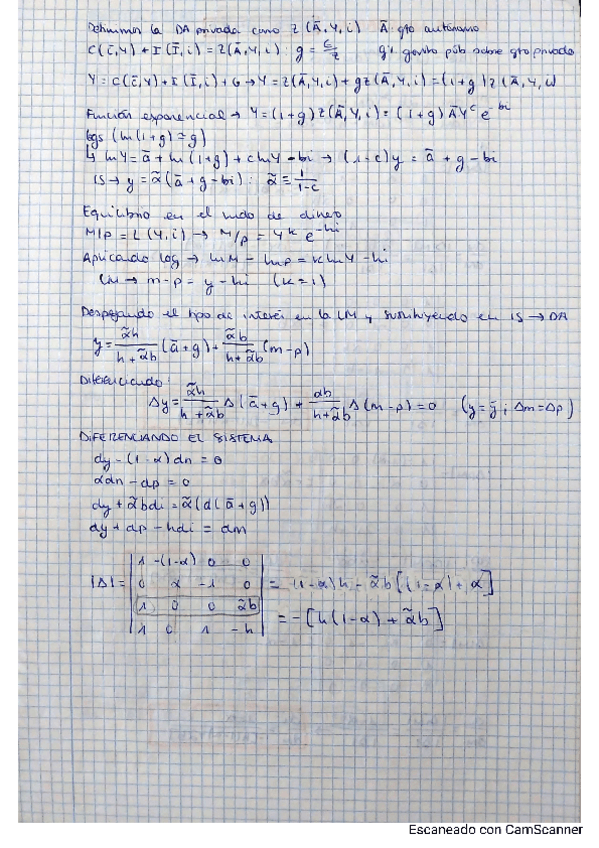 Definimos la DA privada como z(Ā,Y,i) Ā gto autónomo
C(c̄,Y)+I(Ī,i)=z(Ā,Y,i): g=G/z g: gasto púb sobre gto privado
Y=C(c̄,Y)+I(Ī,i)+G→Y=z(Ā,Y,i)+gz(Ā,Y,i)=(1+g)z(Ā,Y,i)
Función exponencial → Y=(1+g)z(Ā,Y,i)=(1+g)ĀY^c e^-bi
logs (ln(1+g)≃g)
↳ lnY=ā+ln(1+g)+c lnY-bi → (1-c)y=ā+g-bi
IS→ y=α̃(ā+g-bi): α̃≡1/1-c
Equilibrio en el mdo de dinero
M/P=L(Y,i)→M/P=Y^k e^-hi
Aplicando log → lnM-lnP=KlnY-hi
LM→ m-p=y-hi (K=1)
Despejando el tipo de interés en la LM y sustituyendo en IS→DA
y=α̃h/h+α̃b (ā+g)+α̃b/h+α̃b (m-p)
Diferenciando:
Δy=α̃h/h+α̃b Δ(ā+g)+αb/h+α̃b Δ(m-p)=0 (y=ȳ; Δm=Δp)
DIFERENCIANDO EL SISTEMA
dy-(1-α)dn=0
αdn-dp=0
dy+α̃bdi=α̃(d(ā+g))
dy+dp-hdi=dm
1 -(1-α) 0 0
|Δ|= 0 α -1 0 = (1-α)h-α̃b[(1-α)+α]
1 0 0 α̃b =-[h(1-α)+α̃b]
1 0 1 -h
Escaneado con CamScanner